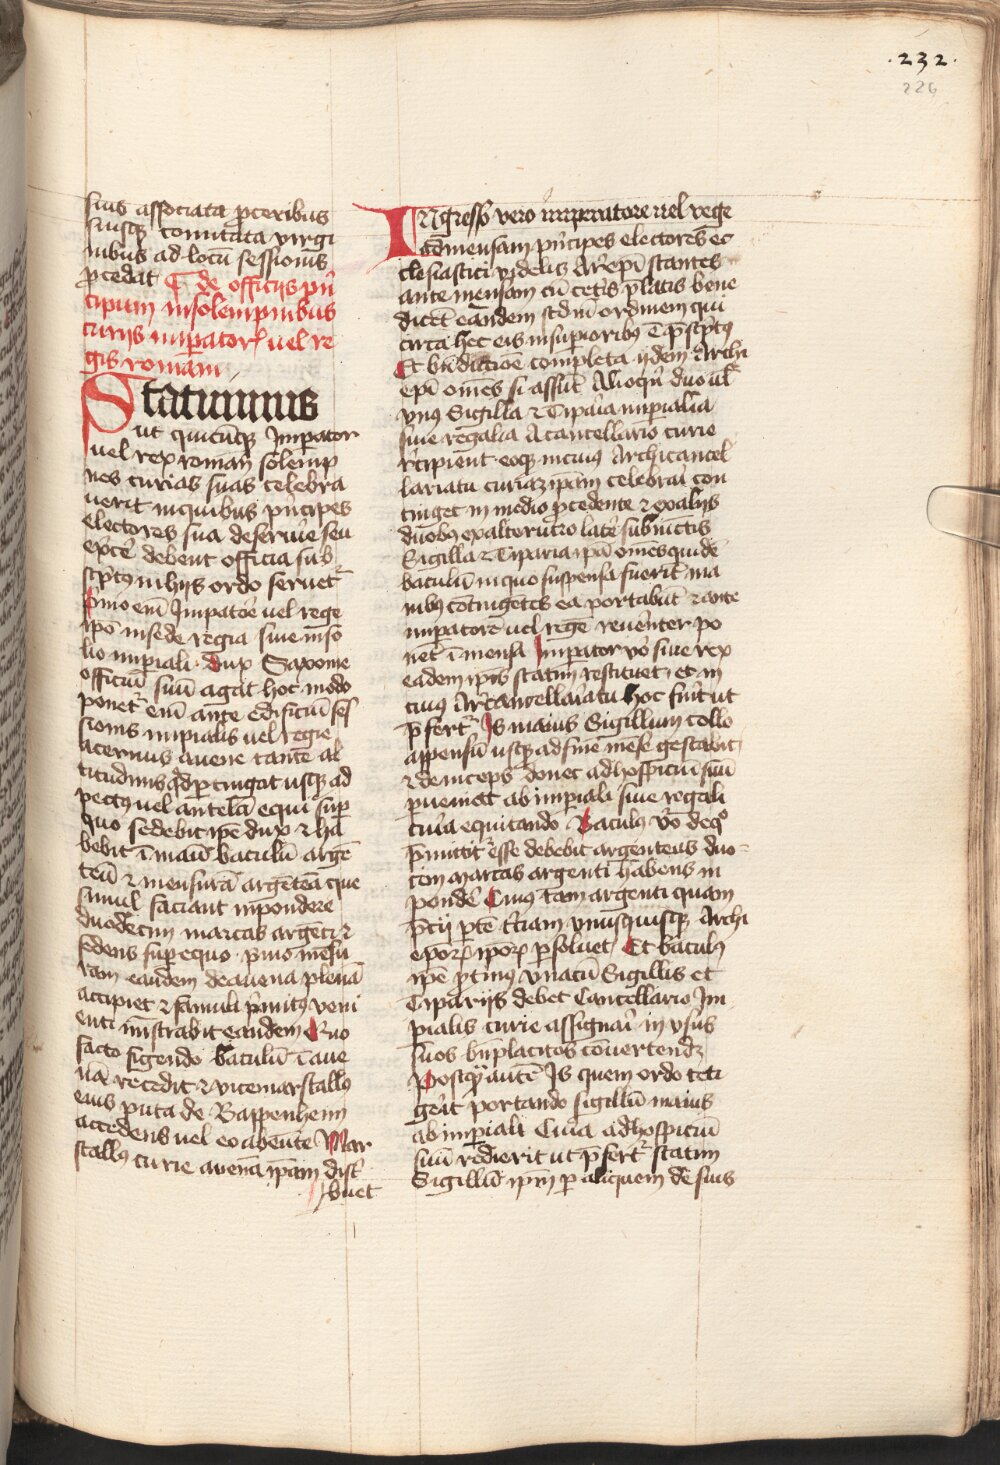 .232.
226
suis associata p̄ceribus
suisqꝫ comitata virgi
nibus ad locū sessionis
p̄cedat De officijs pn̄
cipum in solempnibus
curijs imꝑatorꝝ uel re
gis romani
Statuimus
ut quicūqꝫ Imperator
uel rex romanꝰ solemp
nes curias suas celebra
uerit in quibus pn̄cipes
electores sua deseruire seu
exꝑcē debent officia sub
scp̄tꝰ in hijs ordo seruetᷣ
Pͥmo em̄ Imꝑatore uel rege
ipō in sede regia siue in so
lio imꝑiali. Dux Saxonie
officiū suū agat hoc modo
ponetᷣ em̄ ante edificiū ses
sionis imꝑialis uel regie
aceruus auene tante al
titudinis qd ꝑtingat usqꝫ ad
pectꝰ uel antelā equi suꝑ
quo sedebit ip̄e dux ⁊ ha
bebit ī manu baculū argē
teū ⁊ mensurā argēteā que
simul faciant in pondere
duodecim marcas argēti ⁊
sedens suꝑ equo. pͥmo mēsu
ram eandem de auena plenā
accipiet ⁊ famulo pͥmitus veni
enti mīstrabit eandem Quo
facto figendo baculū ī aue
nā recedit ⁊ vicemarscallꝰ
eius puta de Bappenheim
accedens uel eo absente Mar
scallꝰ curie auenā ip̄am dist
buet
Ingresso vero imperatore uel rege
ad mensam pͥncipes electores ec
clesiastici videlicꝫ Arepī stantes
ante mensam cū cetis p̄latis bene
dicēt eandem scdm̄ ordinem qui
circa hec eis in suꝑioribꝰ e p̄scp̄tꝰ
Et bn̄dictiōe completa ijdem Archi
epī om̄es si assūt Alioqͥn duo ul̄
vnꝰ Sigilla ⁊ Tiparia imꝑialia
siue regalia A cancellario curie
rͥcipient. eoqꝫ in cuiꝰ Archicancel
lariatu curiaꝫ ip̄am celebrari con
tinget in medio p̄cedente ⁊ ex alijs
duobꝰ ex alterutro late subiunctis
Sigilla ⁊ Tiparia ip̄a om̄es quidē
baculū in quo suspensa fuerīt ma
nibꝰ cōtingētes ea portabūt ⁊ ante
imꝑatorē uel regē reuerēter po
nēt ī mensa Imꝑator vo siue rex
eadem ip̄is statim restituet. et in
cuiꝰ Archicancellariatu hoc fūit ut
p̄fertᷣ Is maius Sigillum collo
appensū usqꝫ ad finē mēse gestabit
⁊ deinceps donec ad hospiciū suū
ꝑueniat ab imꝑiali siue regali
curia equitando Baculꝰ vo de qͦ
p̄mittitᷣ esse debebit argenteus duo
cim Marcas argenti habens in
pondē Cuiꝰ tam argenti quam
p̄cij ptē tͥciam vnusquisqꝫ Archi
ep̄orꝝ ip̄orꝝ ꝑsoluet Et baculꝰ
ip̄e ꝓtinꝰ vna cū Sigillis et
Tiparijs debet Cancellario Im
ꝑialis curie assignari in vsus
suos bn̄placitos cōuertendꝫ
Postqͣ autē Is quem ordo teti
gerit portando sigillū maius
ab imꝑiali Curia ad hospiciū
suū redierit ut p̄fertᷣ statim
Sigillū ip̄m ꝑ aliquem de suis